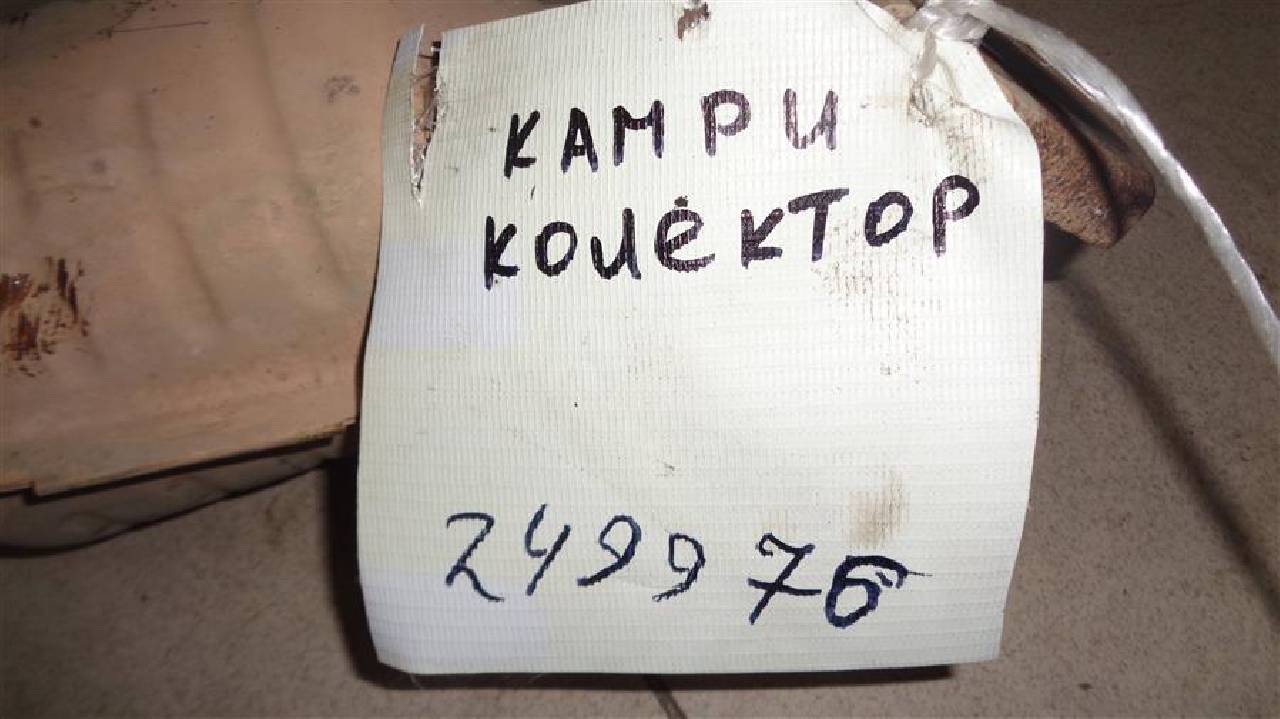 КАМРИ
КОЛЕКТОР
249976